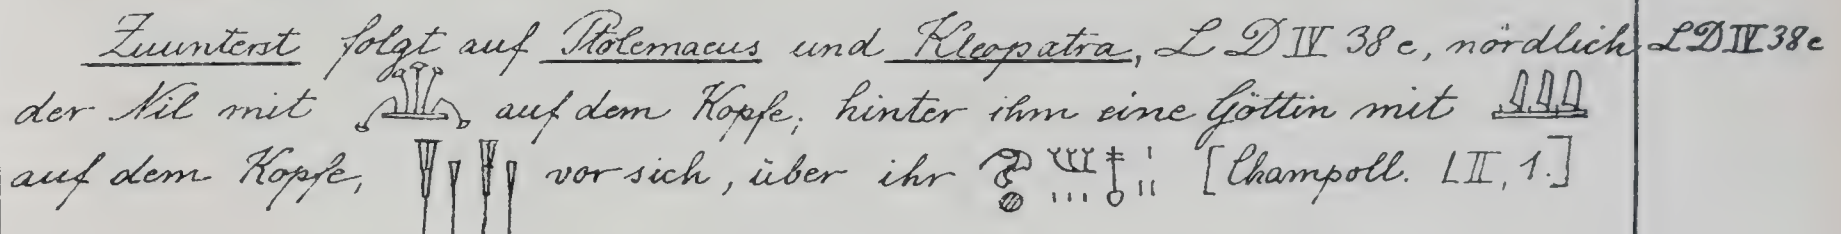 Zuunterst folgt auf Ptolemaeus und Kleopatra, L D IV 38 c, nördlich L D IV 38 c
der Nil mit auf dem Kopfe; hinter ihm eine Göttin mit
auf dem Kopfe, vor sich, über ihr [Champoll. LII, 1.]